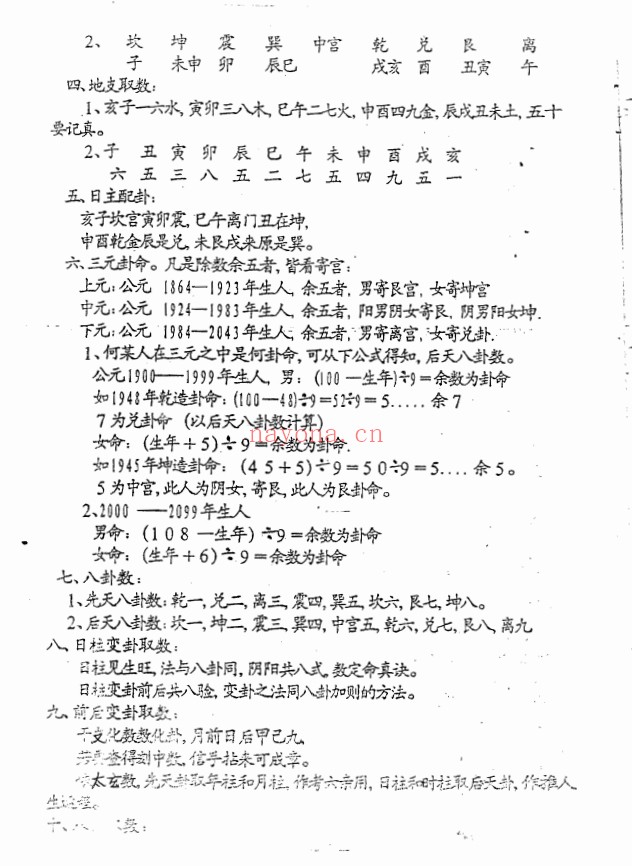 2、 坎 坤 震 巽 中宫 乾 兑 艮 离
子 未申 卯 辰巳 戌亥 酉 丑寅 午
四、地支取数:
1、亥子一六水, 寅卯三八木, 巳午二七火, 申酉四九金, 辰戌丑未土, 五十
要记真。
2、子 丑 寅 卯 辰 巳 午 未 申 酉 戌 亥
六 五 三 八 五 二 七 五 四 九 五 一
五、日主配卦:
亥子坎宫寅卯震, 巳午离门丑在坤,
申酉乾金辰是兑, 未艮戌来原是巽。
六、三元卦命。凡是除数余五者, 皆看寄宫:
上元: 公元 1864—1923年生人, 余五者, 男寄艮宫, 女寄坤宫
中元: 公元 1924—1983年生人, 余五者, 阳男阴女寄艮, 阴男阳女坤.
下元: 公元 1984—2043年生人, 余五者, 男寄离宫, 女寄兑卦.
1、何某人在三元之中是何卦命, 可从下公式得知, 后天八卦数。
公元1900——1999年生人, 男: (100—生年)÷9=余数为卦命
如1948年乾造卦命: (100—48)÷9=52÷9=5..... 余7
7为兑卦命 (以后天八卦数计算)
nayona.cn
女命: (生年+5)÷9=余数为卦命.
如1945年坤造卦命: (45+5)÷9=50÷9=5.... 余5。
5为中宫, 此人为阴女, 寄艮, 此人为艮卦命。
2、2000 ——2099年生人
男命: (108—生年)÷9=余数为卦命
女命: (生年+6)÷9=余数为卦命
七、八卦数:
1、先天八卦数: 乾一, 兑二, 离三, 震四, 巽五, 坎六, 艮七, 坤八。
2、后天八卦数: 坎一, 坤二, 震三, 巽四, 中宫五, 乾六, 兑七, 艮八, 离九
八、日柱变卦取数:
日柱见生旺, 法与八卦同, 阴阳共八式, 数定命真诀。
日柱变卦前后共八验, 变卦之法同八卦加则的方法。
九、前后变卦取数:
干支化数数化卦, 月前日后甲己九,
查得刻中数, 信手拈来可成章。
太玄数, 先天卦取年柱和月柱, 作考六亲用, 日柱和时柱取后天卦, 作推人
生
十、 数: